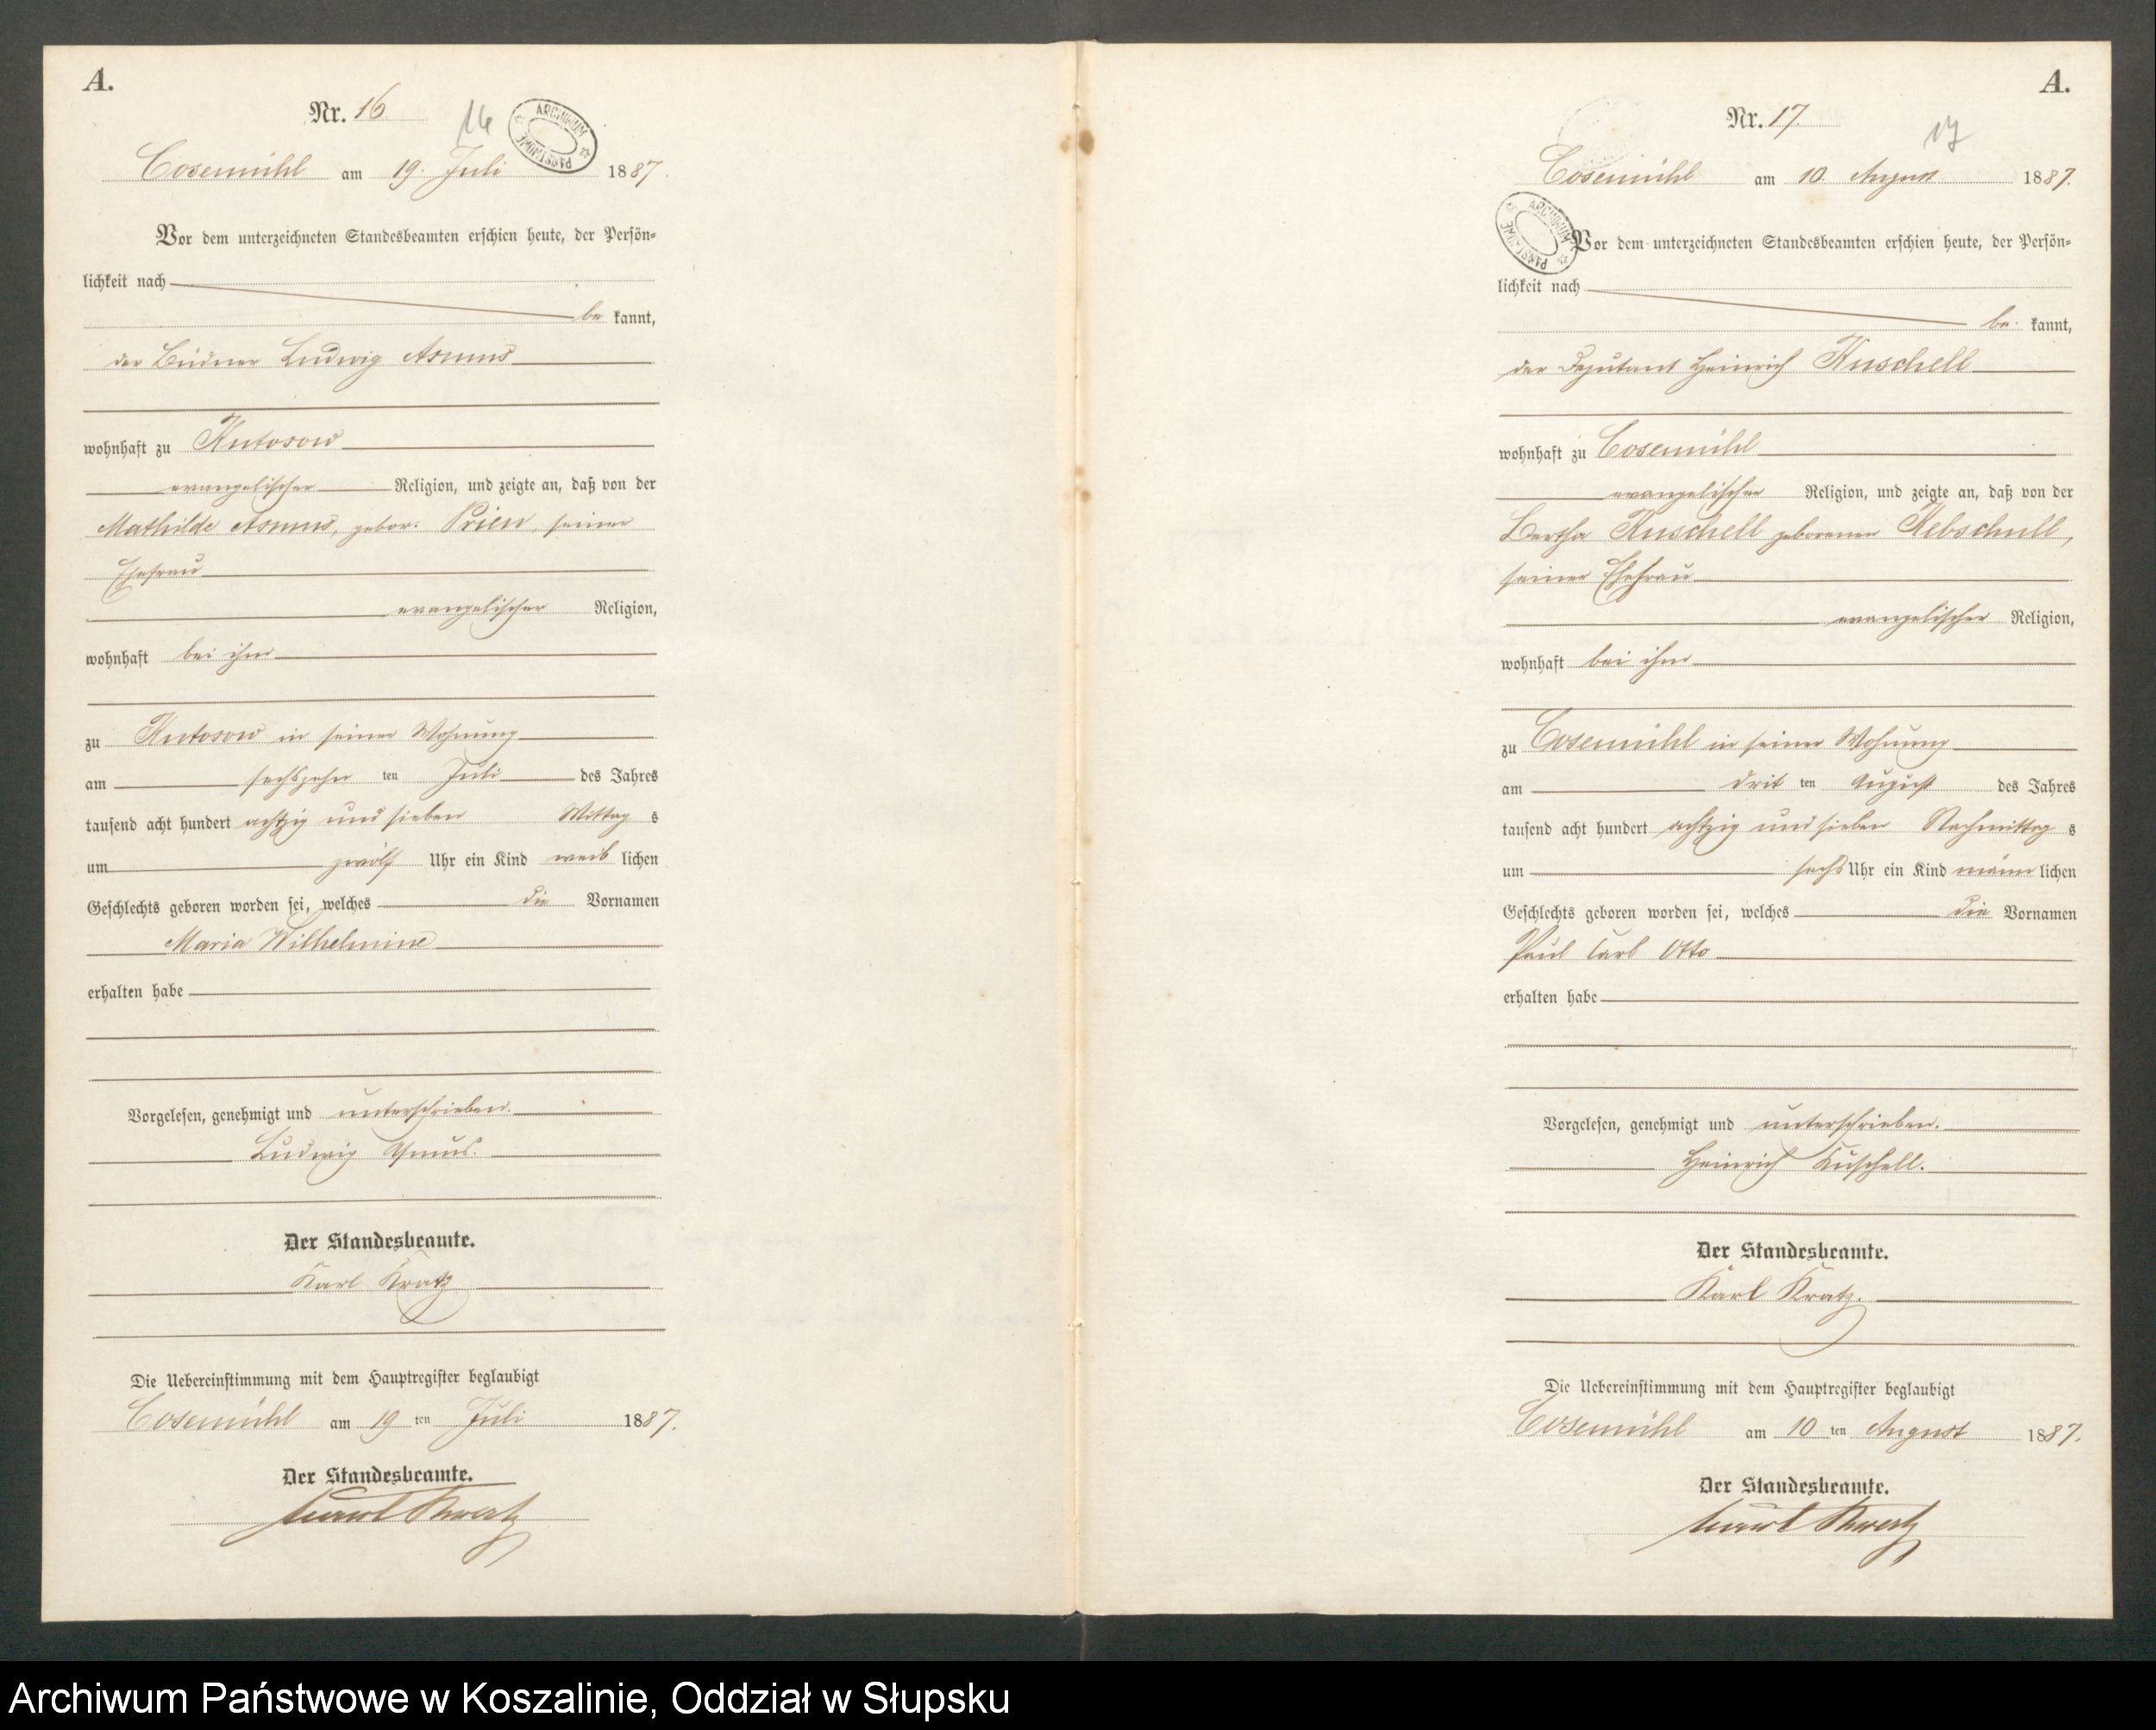 A.
Nr. 16.
16
ARCHIWUM PAŃSTWOWE
Cosemühl am 19. Juli 1887.
Vor dem unterzeichneten Standesbeamten erschien heute, der Persön-
lichkeit nach
be kannt,
der Büdner Ludwig Asmus
wohnhaft zu Kutosow
evangelischer Religion, und zeigte an, daß von der
Mathilde Asmus, gebor. Prien, seiner
Ehefrau
evangelischer Religion,
wohnhaft bei ihm
zu Kutosow in seiner Wohnung
am sechszehn ten Juli des Jahres
tausend acht hundert achtzig und sieben Mittag s
um zwölf Uhr ein Kind weib lichen
Geschlechts geboren worden sei, welches die Vornamen
Maria Wilhelmine
erhalten habe
Vorgelesen, genehmigt und unterschrieben.
Ludwig Asmus.
Der Standesbeamte.
Karl Kratz
Die Uebereinstimmung mit dem Hauptregister beglaubigt
Cosemühl am 19 ten Juli 1887.
Der Standesbeamte.
Karl Kratz
A.
Nr. 17.
17
Cosemühl am 10. August 1887.
ARCHIWUM PAŃSTWOWE
Vor dem unterzeichneten Standesbeamten erschien heute, der Persön-
lichkeit nach
be kannt,
der Deputant Heinrich Kuschell
wohnhaft zu Cosemühl
evangelischer Religion, und zeigte an, daß von der
Bertha Kuschell geborenen Kebschull,
seiner Ehefrau
evangelischer Religion,
wohnhaft bei ihm
zu Cosemühl in seiner Wohnung
am drit ten August des Jahres
tausend acht hundert achtzig und sieben Nachmittag s
um sechs Uhr ein Kind männ lichen
Geschlechts geboren worden sei, welches die Vornamen
Paul Carl Otto
erhalten habe
Vorgelesen, genehmigt und unterschrieben.
Heinrich Kuschell.
Der Standesbeamte.
Karl Kratz.
Die Uebereinstimmung mit dem Hauptregister beglaubigt
Cosemühl am 10 ten August 1887.
Der Standesbeamte.
Karl Kratz
Archiwum Państwowe w Koszalinie, Oddział w Słupsku